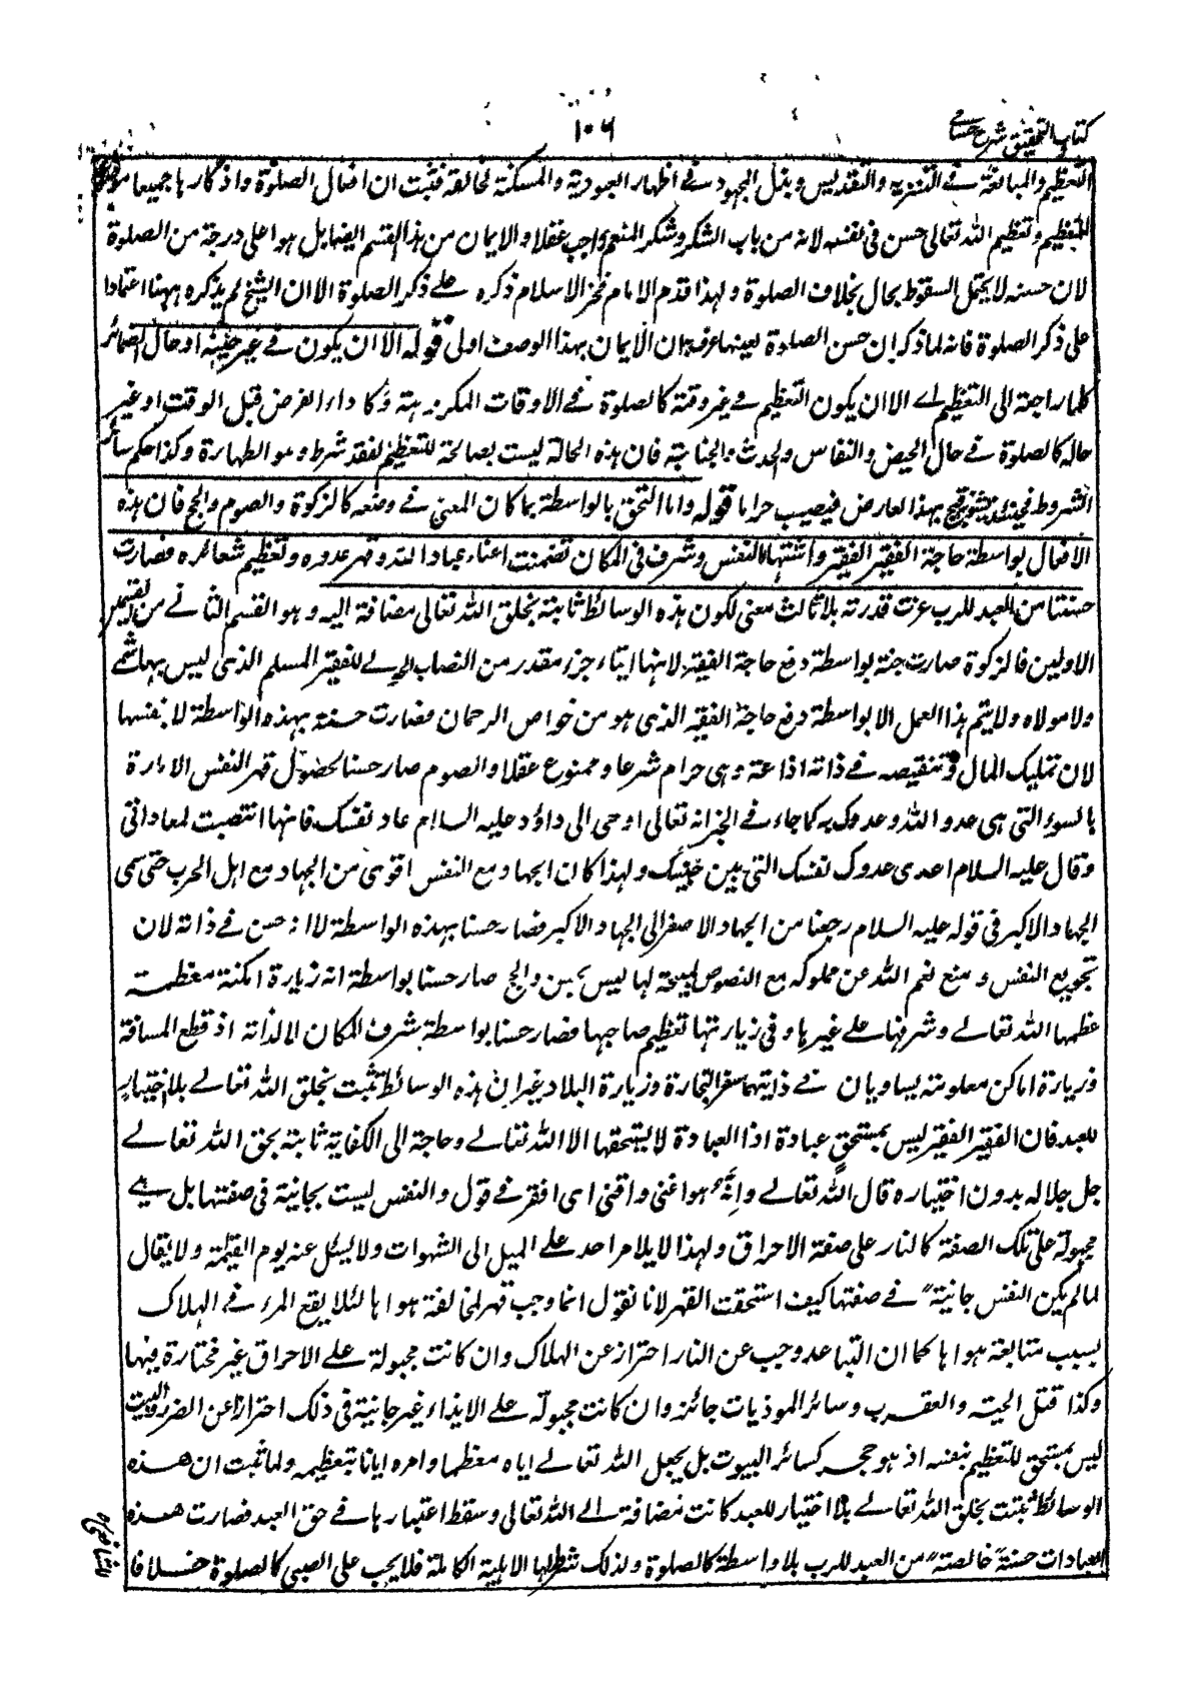 كتاب التحقيق شرح حسامي
١٠٦
التعظيم والمبالغة في التنزيه والتقديس وبذل المجهود في اظهار العبودية والمسكنة لخالقه فثبت ان افعال الصلوة واذكارها جميعا
للتعظيم وتعظيم الله تعالى حسن في نفسه لانه من باب الشكر وشكر المنعم واجب عقلا والايمان من هذا القسم ايضا بل هو اعلى درجة من الصلوة
لان حسنه لا يحتمل السقوط بحال بخلاف الصلوة ولهذا قدم الامام فخر الاسلام ذكره على ذكر الصلوة الا ان الشيخ لم يذكره ههنا اعتمادا
على ذكر الصلوة فانه لما ذكر ان حسن الصلوة لعينها عرف ان الايمان بهذا الوصف اولى قوله الا ان يكون في غير حينه او حاله الضمائر
كلها راجعة الى التعظيم اے الا ان يكون التعظيم في غير وقته كالصلوة في الاوقات المكروهة وكاداء الفرض قبل الوقت او غير
حاله كالصلوة في حال الحيض والنفاس والحدث والجنابة فان هذه الحالة ليست بصالحة للتعظيم لفقد شرطه وهو الطهارة وكذا حكم سائر
الشروط فحينئذ بهذا العارض فيصير حراما قوله واما التحق بالواسطة بما كان المعنى في وضعه كالزكوة والصوم والحج فان هذه
الافعال بواسطة حاجة الفقير الفقير واشتهاء النفس وشرف في المكان تضمنت اغناء عباد الله وقهر عدوه وتعظيم شعائره فصارت
حسنة من العبد للرب عزت قدرته بلا ثالث معنى لكون هذه الوسائط ثابتة بخلق الله تعالى مضافة اليه وهو القسم الثاني من القسمين
الاولين فالزكوة صارت حسنة بواسطة دفع حاجة الفقير لانها ايتاء جزء مقدر من النصاب الحولي للفقير المسلم الذى ليس بهاشمي
ولا مولاه ولا يتم هذا العمل الا بواسطة دفع حاجة الفقير الذى هو من خواص الرحمان فصارت حسنة بهذه الواسطة لا بنفسها
لان تمليك المال وتنقيصه في ذاته اضاعة وهى حرام شرعا وممنوع عقلا والصوم صار حسنا لحصول قهر النفس الامارة
بالسوء التى هى عدو الله وعدوك به كما جاء في الخبر انه تعالى اوحى الى داؤد عليه السلام عاد نفسك فانها انتصبت لمعاداتى
وقال عليه السلام اعدى عدوك نفسك التى بين جنبيك ولهذا كان الجهاد مع النفس اقوى من الجهاد مع اهل الحرب حتى سمى
الجهاد الاكبر فى قوله عليه السلام رجعنا من الجهاد الاصغر الى الجهاد الاكبر فصار حسنا بهذه الواسطة لا انه حسن في ذاته لان
تجويع النفس ومنع نعم الله عن مملوكه مع النصوص المبيحة لها ليس بحسن والحج صار حسنا بواسطة انه زيارة امكنة معظمة
عظمها الله تعالى وشرفها على غيرها وفي زيارتها تعظيم صاحبها فصار حسنا بواسطة شرف المكان لا لذاته اذ قطع المسافة
وزيارة اماكن معلومة يساويان في ذاتيهما سفر التجارة وزيارة البلاد غير ان هذه الوسائط تثبت بخلق الله تعالى بلا اختيار
للعبد فان الفقير الفقير ليس بمستحق عبادة اذا العبادة لا يستحقها الا الله تعالى وحاجة الى الكفاية ثابتة بحق الله تعالى
جل جلاله بدون اختياره قال الله تعالى وانه هو اغنى واقنى اى افقر في قول والنفس ليست بجانية في صفتها بل هي
مجبولة على تلك الصفة كالنار على صفة الاحراق ولهذا لا يلام احد على الميل الى الشهوات ولا يسئل عنه يوم القيمة ولا يقال
لما لم يكن النفس جانية في صفتها كيف استحقت القهر لانا نقول انما وجب قهر لمخالفة هواها لئلا يقع المرء في الهلاك
بسبب متابعة هواها كما ان التباعد وجب عن النار احتراز عن الهلاك وان كانت مجبولة على الاحراق غير مختارة فيها
وكذا قتل الحية والعقرب وسائر الموذيات جائز وان كانت مجبولة على الايذاء غير جانية في ذلك احترازا عن الضرر والبيت
ليس بمستحق للتعظيم بنفسه اذ هو حجر كسائر البيوت بل بجعل الله تعالى اياه معظما وامره ايانا بتعظيمه ولما ثبت ان هذه
الوسائط ثبتت بخلق الله تعالى بلا اختيار للعبد كانت مضافة الى الله تعالى وسقط اعتبارها في حق العبد فصارت هذه
العبادات حسنة خالصة من العبد للرب بلا واسطة كالصلوة ولذلك شرط لها الاهلية الكاملة فلا يجب على الصبى كالصلوة خلافا